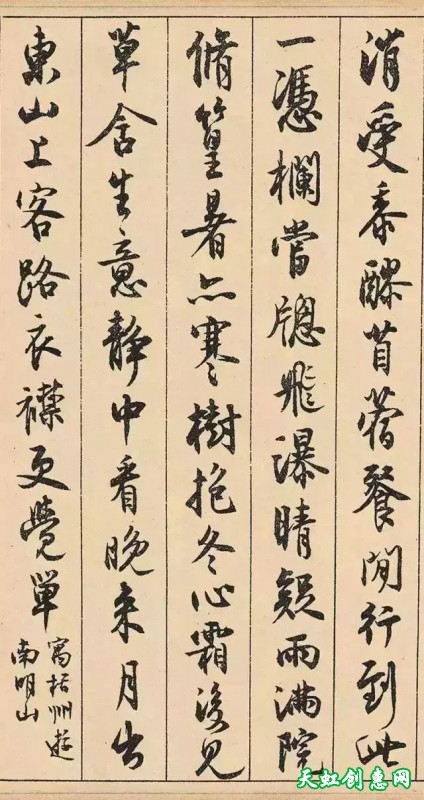 消受黍醪苜蓿餐閒行到此
一憑欄當牕飛瀑晴疑雨滿院
脩篁暑亦寒樹抱冬心霜後見
草含生意靜中看晚來月出
東山上客路衣襟更覺單
寓括州遊
南明山
天虹创惠网